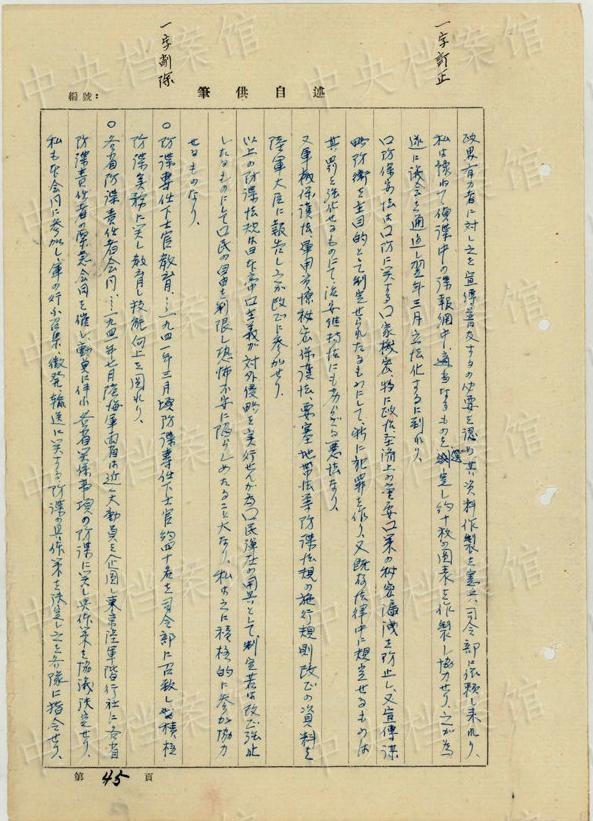 一字訂正
一字削除
述自供筆
編號：
政界有力者に対し之を宣傳普及するの必要を認め其資料作製を憲兵司令部に依頼し来れり、
私は嘗て偵諜中の諜報網中適当なるものを選定し約十枚の図表を作製し協力せり、之が為
遂に議会を通過し翌年三月立法化するに到れり。
口防保安法は口防に関する口家機密、特に政治経済上の重要口策の秘密漏洩を防止し、又宣傳謀
略防衛を主目的として制定せられたるものにして、新に犯罪を作り、又既存法律中に規定せるものは
其罰を強化せるものにて治安維持法にも劣らざる悪法なり。
又軍機保護法、軍用資源秘密保護法、要塞地帯法等防諜法規の施行規則改正の資料を
陸軍大臣に報告し之が改正に参加せり。
以上の防諜法規は日本帝口主義が対外侵略を実行せんが為口民弾圧の用具として制定若は改正強化
したるものにして口民の自由を制限し恐怖不安に陥らしめたること大なり、私は之に積極的に参加協力
せるものなり。
○防諜専任下士官教育…一九四一年三月頃防諜専任下士官約四十名を司令部に召致し積極
防諜実務に関し教育し技能向上を図れり。
○各省防諜責任者会同…一九四一年七月陸海軍両省は近く大動員を企図し東京陸軍偕行社に各省
防諜責任者の緊急会同を催し、動員に伴ふ各省関係事項の防諜に関し具体策を協議決定せり。
私も本会同に参加し、軍の行ふ召集、徴発、輸送に関する防諜の具体策を決定し之を各隊に指令せり。
第45頁
中央档案馆